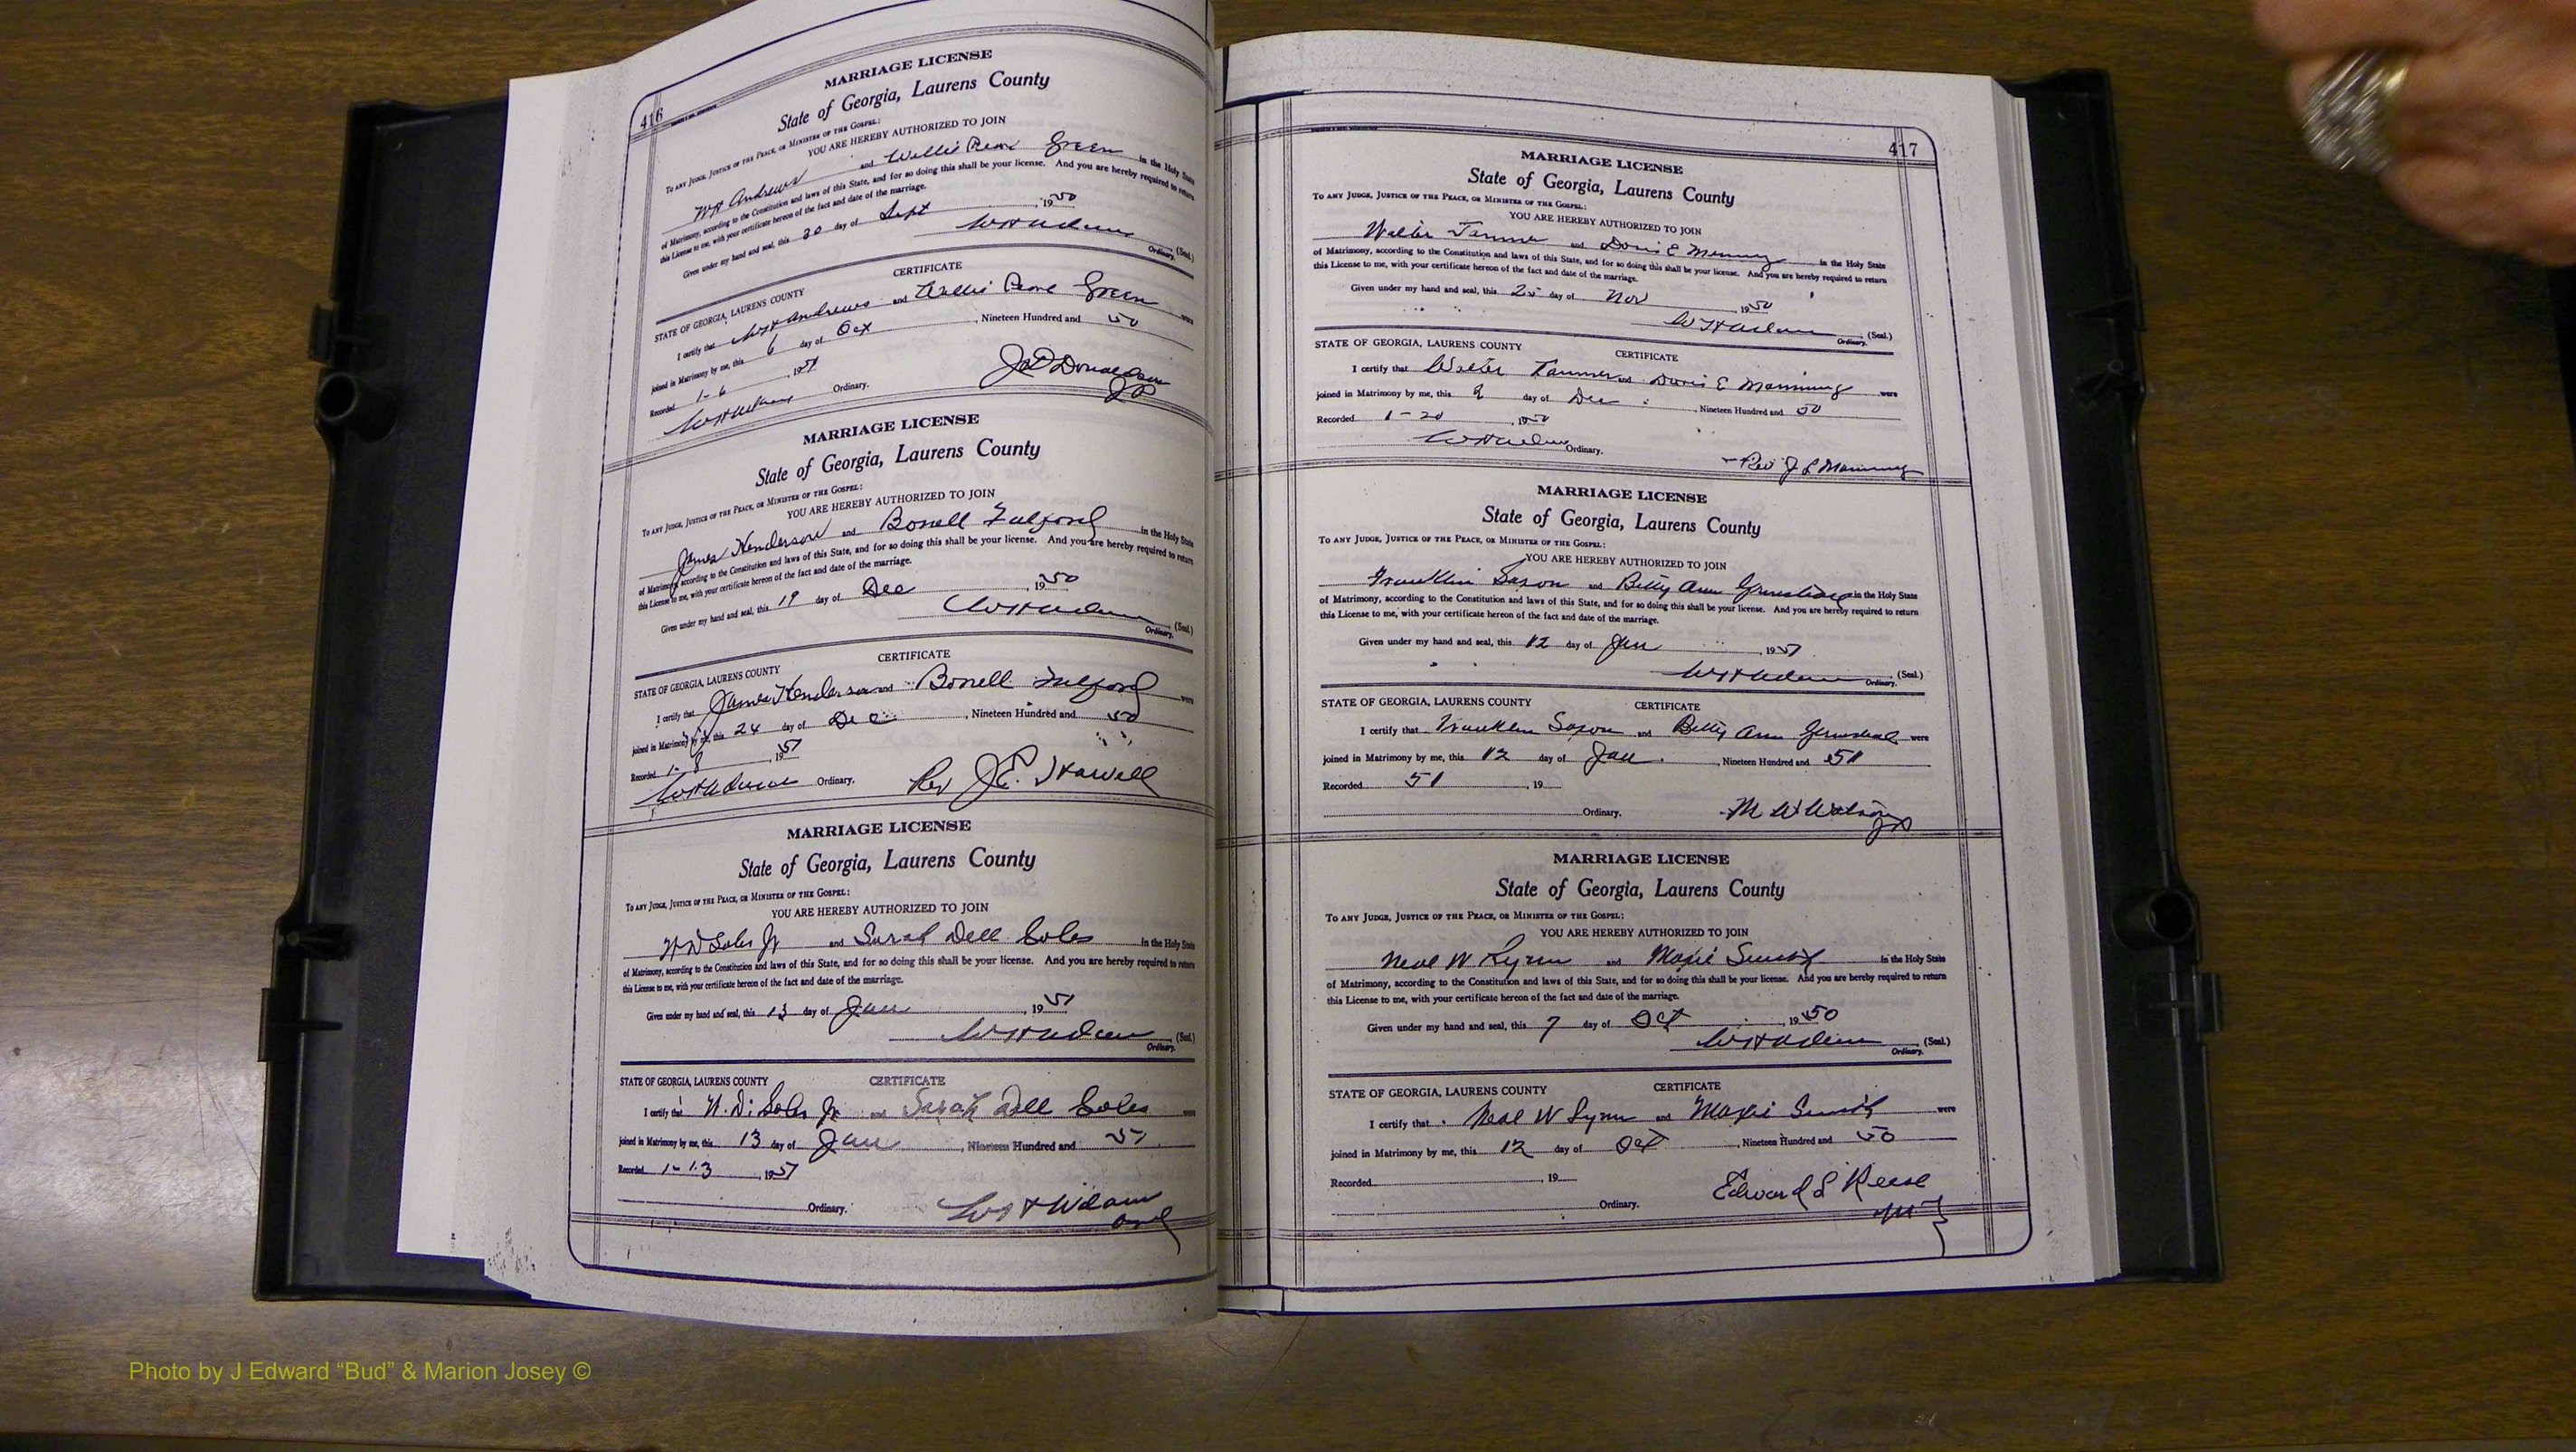 416
MARRIAGE LICENSE
State of Georgia, Laurens County
To any Judge, Justice of the Peace, or Minister of the Gospel:
YOU ARE HEREBY AUTHORIZED TO JOIN
W H Andrews and Willie Green in the Holy State
of Matrimony, according to the Constitution and laws of this State, and for so doing this shall be your license. And you are hereby required to return
this License to me, with your certificate hereon of the fact and date of the marriage.
Given under my hand and seal, this 30 day of Sept, 1950
(Seal.)
Ordinary.
CERTIFICATE
STATE OF GEORGIA, LAURENS COUNTY
I certify that W H Andrews and Willie Green were
joined in Matrimony by me, this 6 day of Oct, Nineteen Hundred and 50
Recorded 1-6, 1951
Ordinary.
Donaldson
JP
MARRIAGE LICENSE
State of Georgia, Laurens County
To any Judge, Justice of the Peace, or Minister of the Gospel:
YOU ARE HEREBY AUTHORIZED TO JOIN
James Henderson and Bonell Fulford in the Holy State
of Matrimony, according to the Constitution and laws of this State, and for so doing this shall be your license. And you are hereby required to return
this License to me, with your certificate hereon of the fact and date of the marriage.
Given under my hand and seal, this 19 day of Dec, 1950
(Seal.)
Ordinary.
CERTIFICATE
STATE OF GEORGIA, LAURENS COUNTY
I certify that James Henderson and Bonell Fulford were
joined in Matrimony by me, this 24 day of Dec, Nineteen Hundred and 50
Recorded 1-8, 1951
Ordinary.
Rev J.E.
MARRIAGE LICENSE
State of Georgia, Laurens County
To any Judge, Justice of the Peace, or Minister of the Gospel:
YOU ARE HEREBY AUTHORIZED TO JOIN
Jr and Sarah Dell in the Holy State
of Matrimony, according to the Constitution and laws of this State, and for so doing this shall be your license. And you are hereby required to return
this License to me, with your certificate hereon of the fact and date of the marriage.
Given under my hand and seal, this 13 day of Jan, 1951
(Seal.)
Ordinary.
STATE OF GEORGIA, LAURENS COUNTY CERTIFICATE
I certify that Jr and Sarah Dell were
joined in Matrimony by me, this 13 day of Jan, Nineteen Hundred and 51
Recorded 1-13, 1951
Ordinary.
417
MARRIAGE LICENSE
State of Georgia, Laurens County
To any Judge, Justice of the Peace, or Minister of the Gospel:
YOU ARE HEREBY AUTHORIZED TO JOIN
Walter Tanner and Doris E Manning in the Holy State
of Matrimony, according to the Constitution and laws of this State, and for so doing this shall be your license. And you are hereby required to return
this License to me, with your certificate hereon of the fact and date of the marriage.
Given under my hand and seal, this 25 day of Nov, 1950
(Seal.)
Ordinary.
STATE OF GEORGIA, LAURENS COUNTY
CERTIFICATE
I certify that Walter Tanner and Doris E Manning were
joined in Matrimony by me, this day of Dec, Nineteen Hundred and 50
Recorded 1-20, 1950
Ordinary.
Rev J L Manning
MARRIAGE LICENSE
State of Georgia, Laurens County
To any Judge, Justice of the Peace, or Minister of the Gospel:
YOU ARE HEREBY AUTHORIZED TO JOIN
Franklin Saxon and Betty Ann in the Holy State
of Matrimony, according to the Constitution and laws of this State, and for so doing this shall be your license. And you are hereby required to return
this License to me, with your certificate hereon of the fact and date of the marriage.
Given under my hand and seal, this 12 day of Jan, 1951
(Seal.)
Ordinary.
STATE OF GEORGIA, LAURENS COUNTY CERTIFICATE
I certify that Franklin Saxon and Betty Ann were
joined in Matrimony by me, this 12 day of Jan, Nineteen Hundred and 51
Recorded 51, 19
Ordinary. M W Watson
JP
MARRIAGE LICENSE
State of Georgia, Laurens County
To any Judge, Justice of the Peace, or Minister of the Gospel:
YOU ARE HEREBY AUTHORIZED TO JOIN
Neal W and Maxie Smith in the Holy State
of Matrimony, according to the Constitution and laws of this State, and for so doing this shall be your license. And you are hereby required to return
this License to me, with your certificate hereon of the fact and date of the marriage.
Given under my hand and seal, this 7 day of Oct, 1950
(Seal.)
Ordinary.
STATE OF GEORGIA, LAURENS COUNTY CERTIFICATE
I certify that Neal W and Maxie Smith were
joined in Matrimony by me, this 12 day of Oct, Nineteen Hundred and 50
Recorded, 19
Edward S Reese
Ordinary.
Photo by J Edward “Bud” & Marion Josey ©